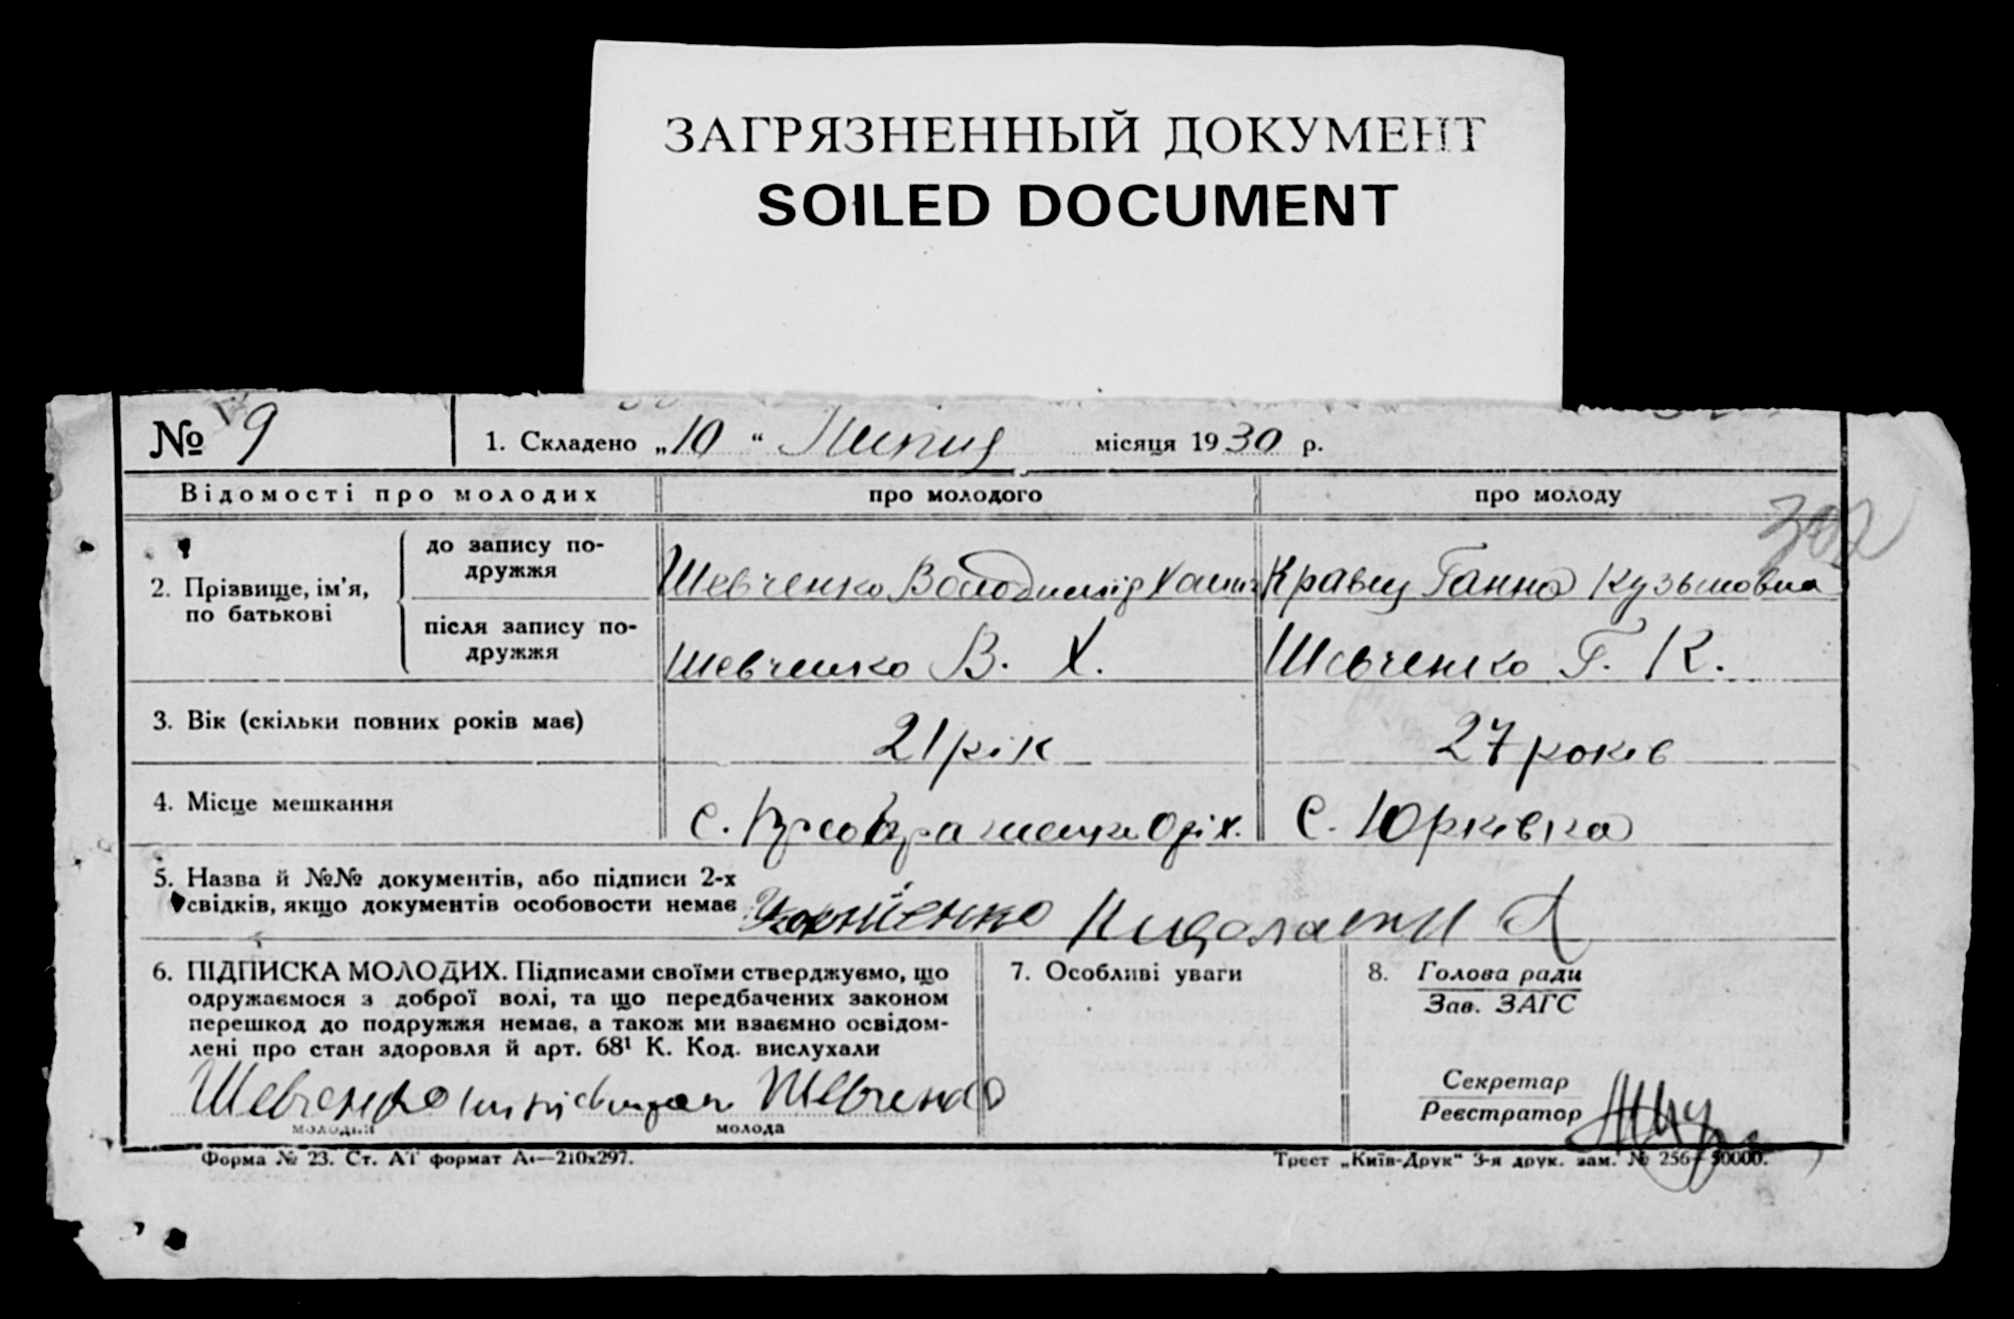 ЗАГРЯЗНЕННЫЙ ДОКУМЕНТ
SOILED DOCUMENT
№ 9
1. Складено „10“ Липня місяця 1930 р.
Відомості про молодих
про молодого
про молоду
302
2. Прізвище, ім'я, по батькові
до запису по-
дружжя
Шевченко Володимир
Кравец Ганна Кузьмовна
після запису по-
дружжя
Шевченко В. Х.
Шевченко Г. К.
3. Вік (скільки повних років має)
21 рік
27 років
4. Місце мешкання
с.
с. Юрківка
5. Назва й №№ документів, або підписи 2-х
свідків, якщо документів особовости немає
6. ПІДПИСКА МОЛОДИХ. Підписами своїми стверджуємо, що
одружаємося з доброї волі, та що передбачених законом
перешкод до подружжя немає, а також ми взаємно освідом-
лені про стан здоровля й арт. 68¹ К. Код. вислухали
Шевченко Шевченко
молодий
молода
7. Особливі уваги
8. Голова ради
Зав. ЗАГС
Секретар
Реєстратор
Форма № 23. Ст. А1 формат А4—210x297.
Трест „Київ-Друк“ 3-я друк. зам. № 256—50000.